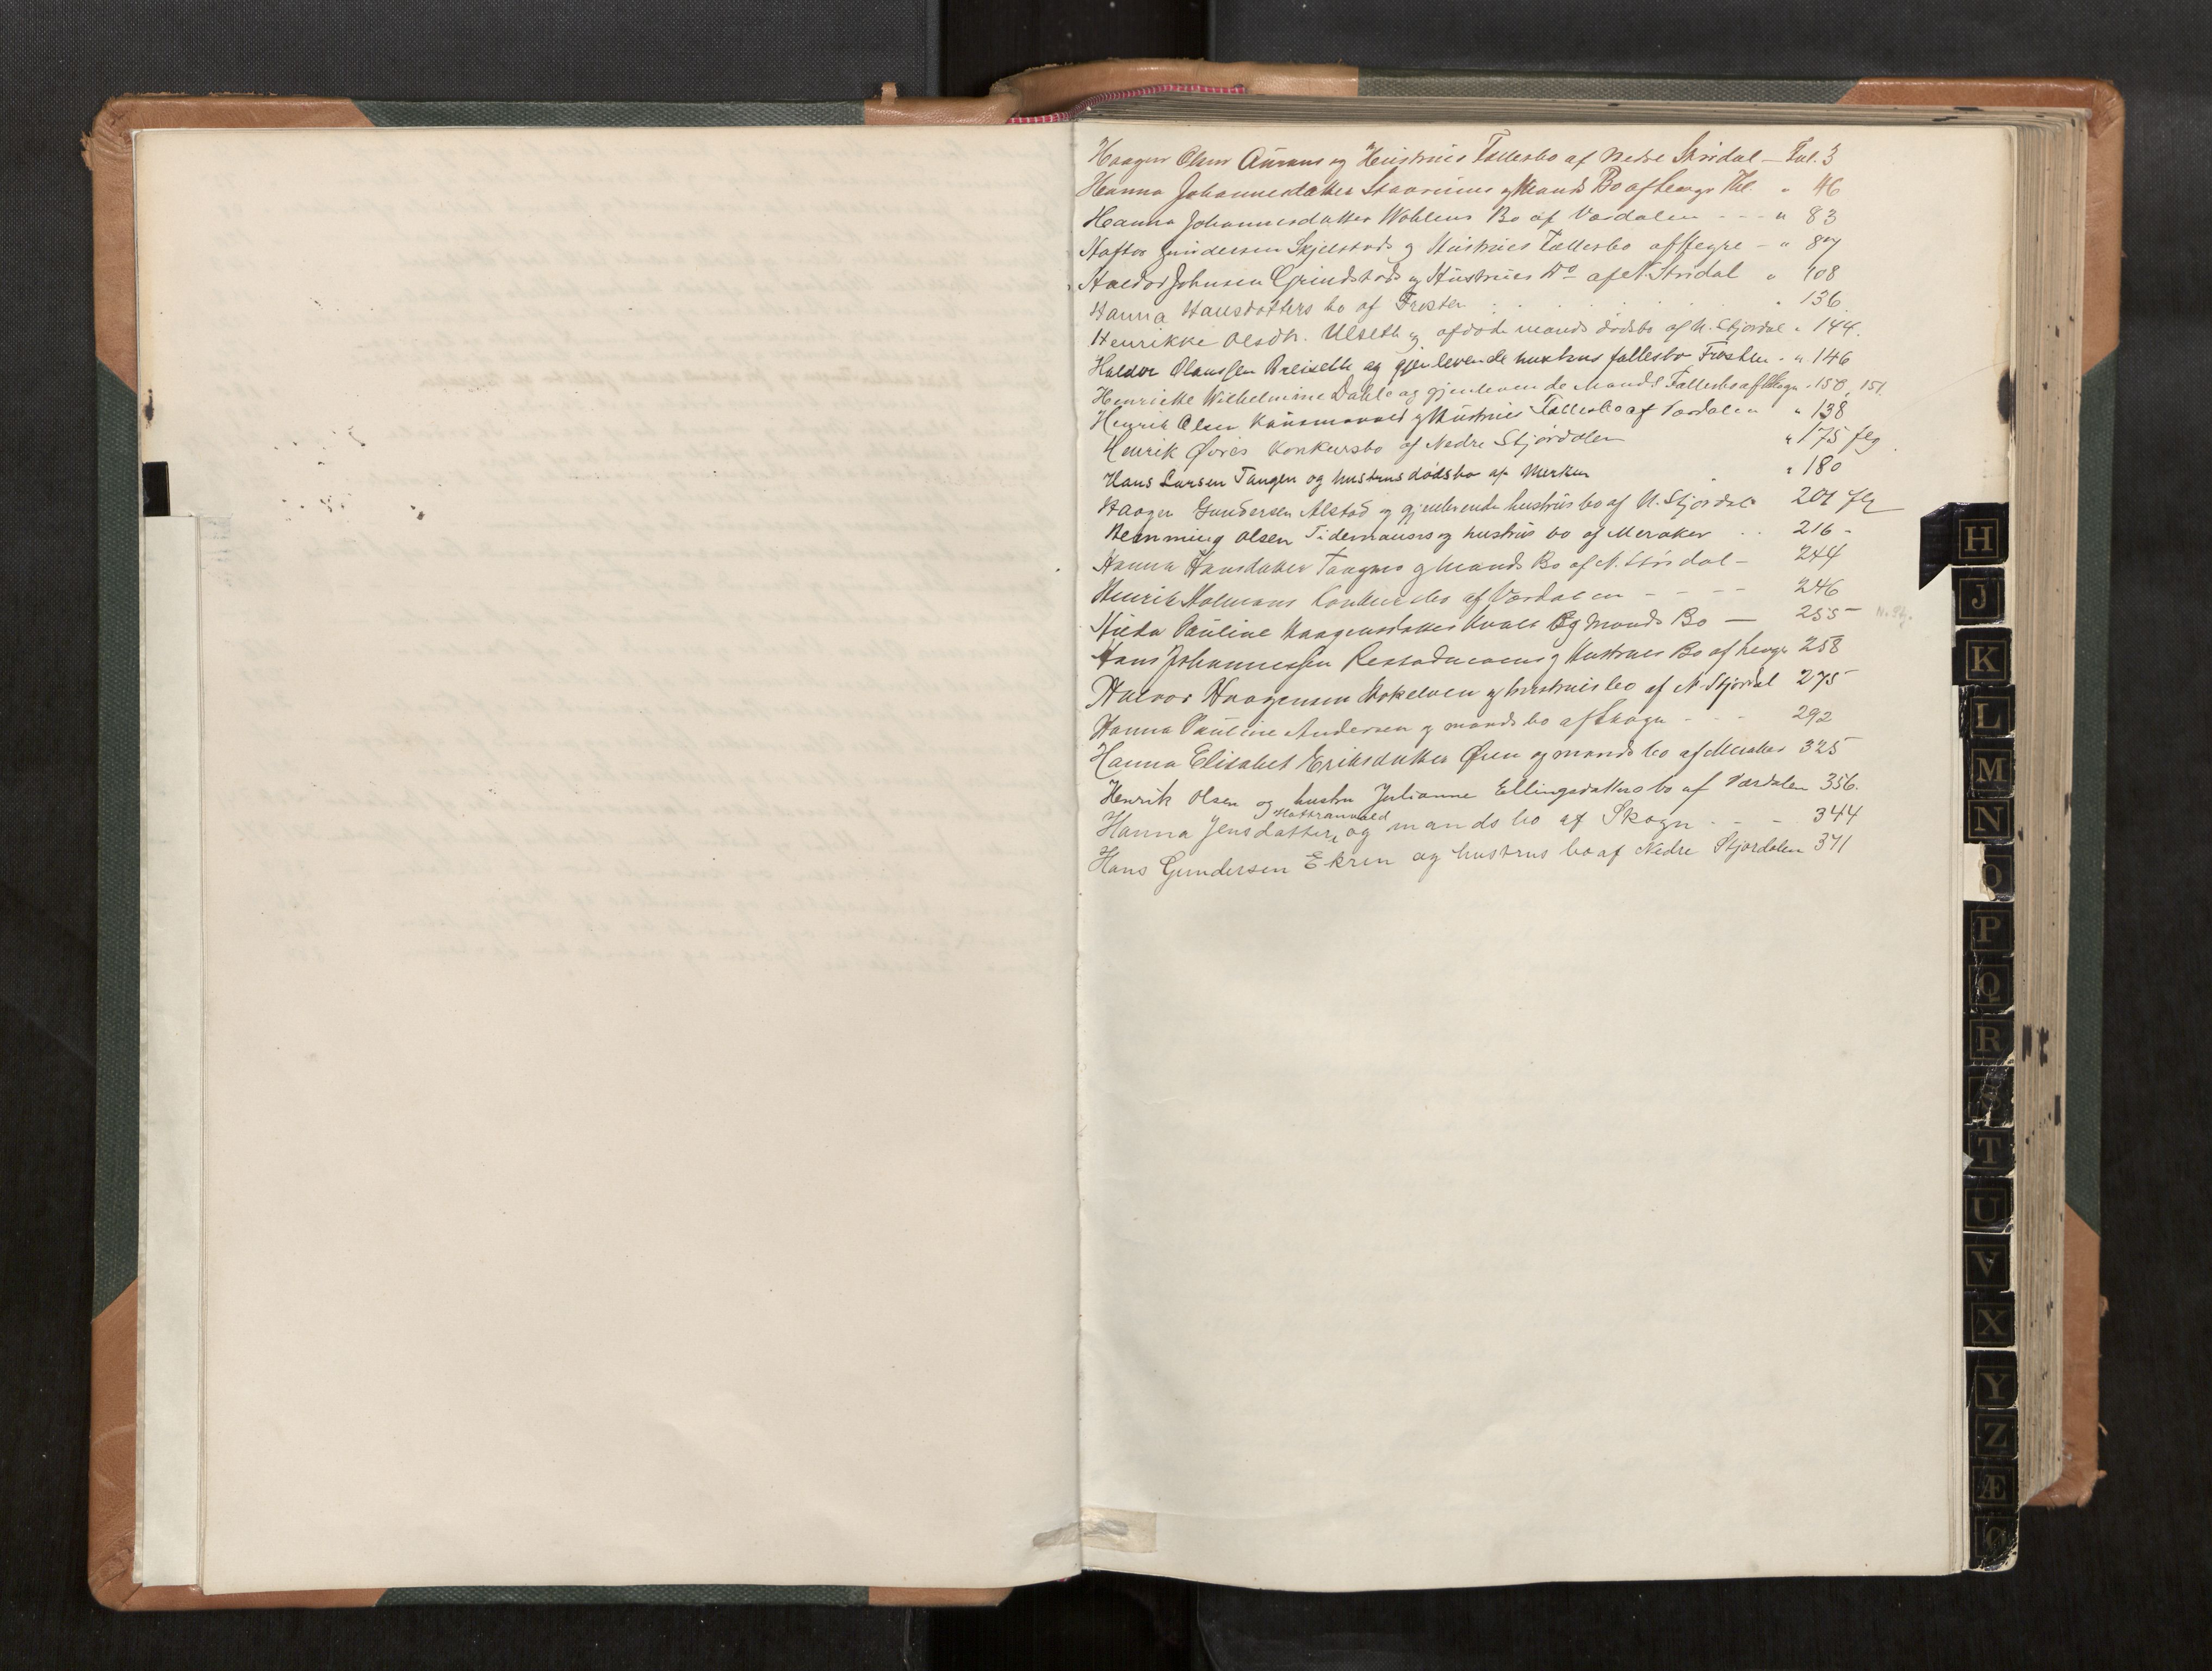 Haagen Olsen Aunans og Hustrues Fællesbo af Nedre Stridal — Fol. 3
Hanna Johannesdatter og Mands Bo af " 46
Hanna Johannesdatter Woldens Bo af Værdalen - - - " 83
Haftor Gundersen Skjelstads og Hustrues Fællesbo af Hegre - " 87
Haldor Johnsen Grindstads og Hustrues Do af N. Stridal " 108
Hanna Hansdatters bo af Frosten " 136
Henrikke Olsdtr. Ulseth og afdøde mands dødsbo af N. Stjørdal " 144.
Haldor Olaussen og gjenlevende hustrus fællesbo Frosten - " 146
Henrikke Wilhelmine Dahle og gjenlevende Mands Fællesbo af Skogn " 150, 151.
Henrik Olsen og Hustrues Fællesbo af Værdalen " 138
Henrik Øvres Konkursbo af Nedre Stjørdalen " 175 flg.
Hans Larsen Tangen og hustrus dødsbo af Merker " 180
Haagen Gundersen Alstad og gjenlevende hustrus bo af N. Stjørdal 201 flg
Hemming Olsen Tidemanses og hustrus bo af Meraker . . 216 -
Hanna Hansdatter og Mands Bo af N. Stridal - 244
Henrik Holmans Konkursbo af Værdalen - - - - 246
Hilda Pauline Haagensdatter Kvale og Mands Bo — 255 N. Stj.
Hans Johannessen og Hustrues Bo af 258
Halvor Haagensen og hustrues bo af N. Stjørdal 275
Hanna Pauline Andersen og mands bo af Skogn - - - 292
Hanna Elisabet Eriksdatter Øien og mands bo af Meraker 325
Henrik Olsen og hustru Julianne Ellingsdatters bo af Værdalen 356.
Hotranvald
Hanna Jensdatter, og mands bo af Skogn - - - 344
Hans Gundersen Ekren og hustrus bo af Nedre Stjørdalen 371
H
J
K
L
M
N
O
P
Q
R
S
T
U
V
X
Y
Z
Æ
Ø